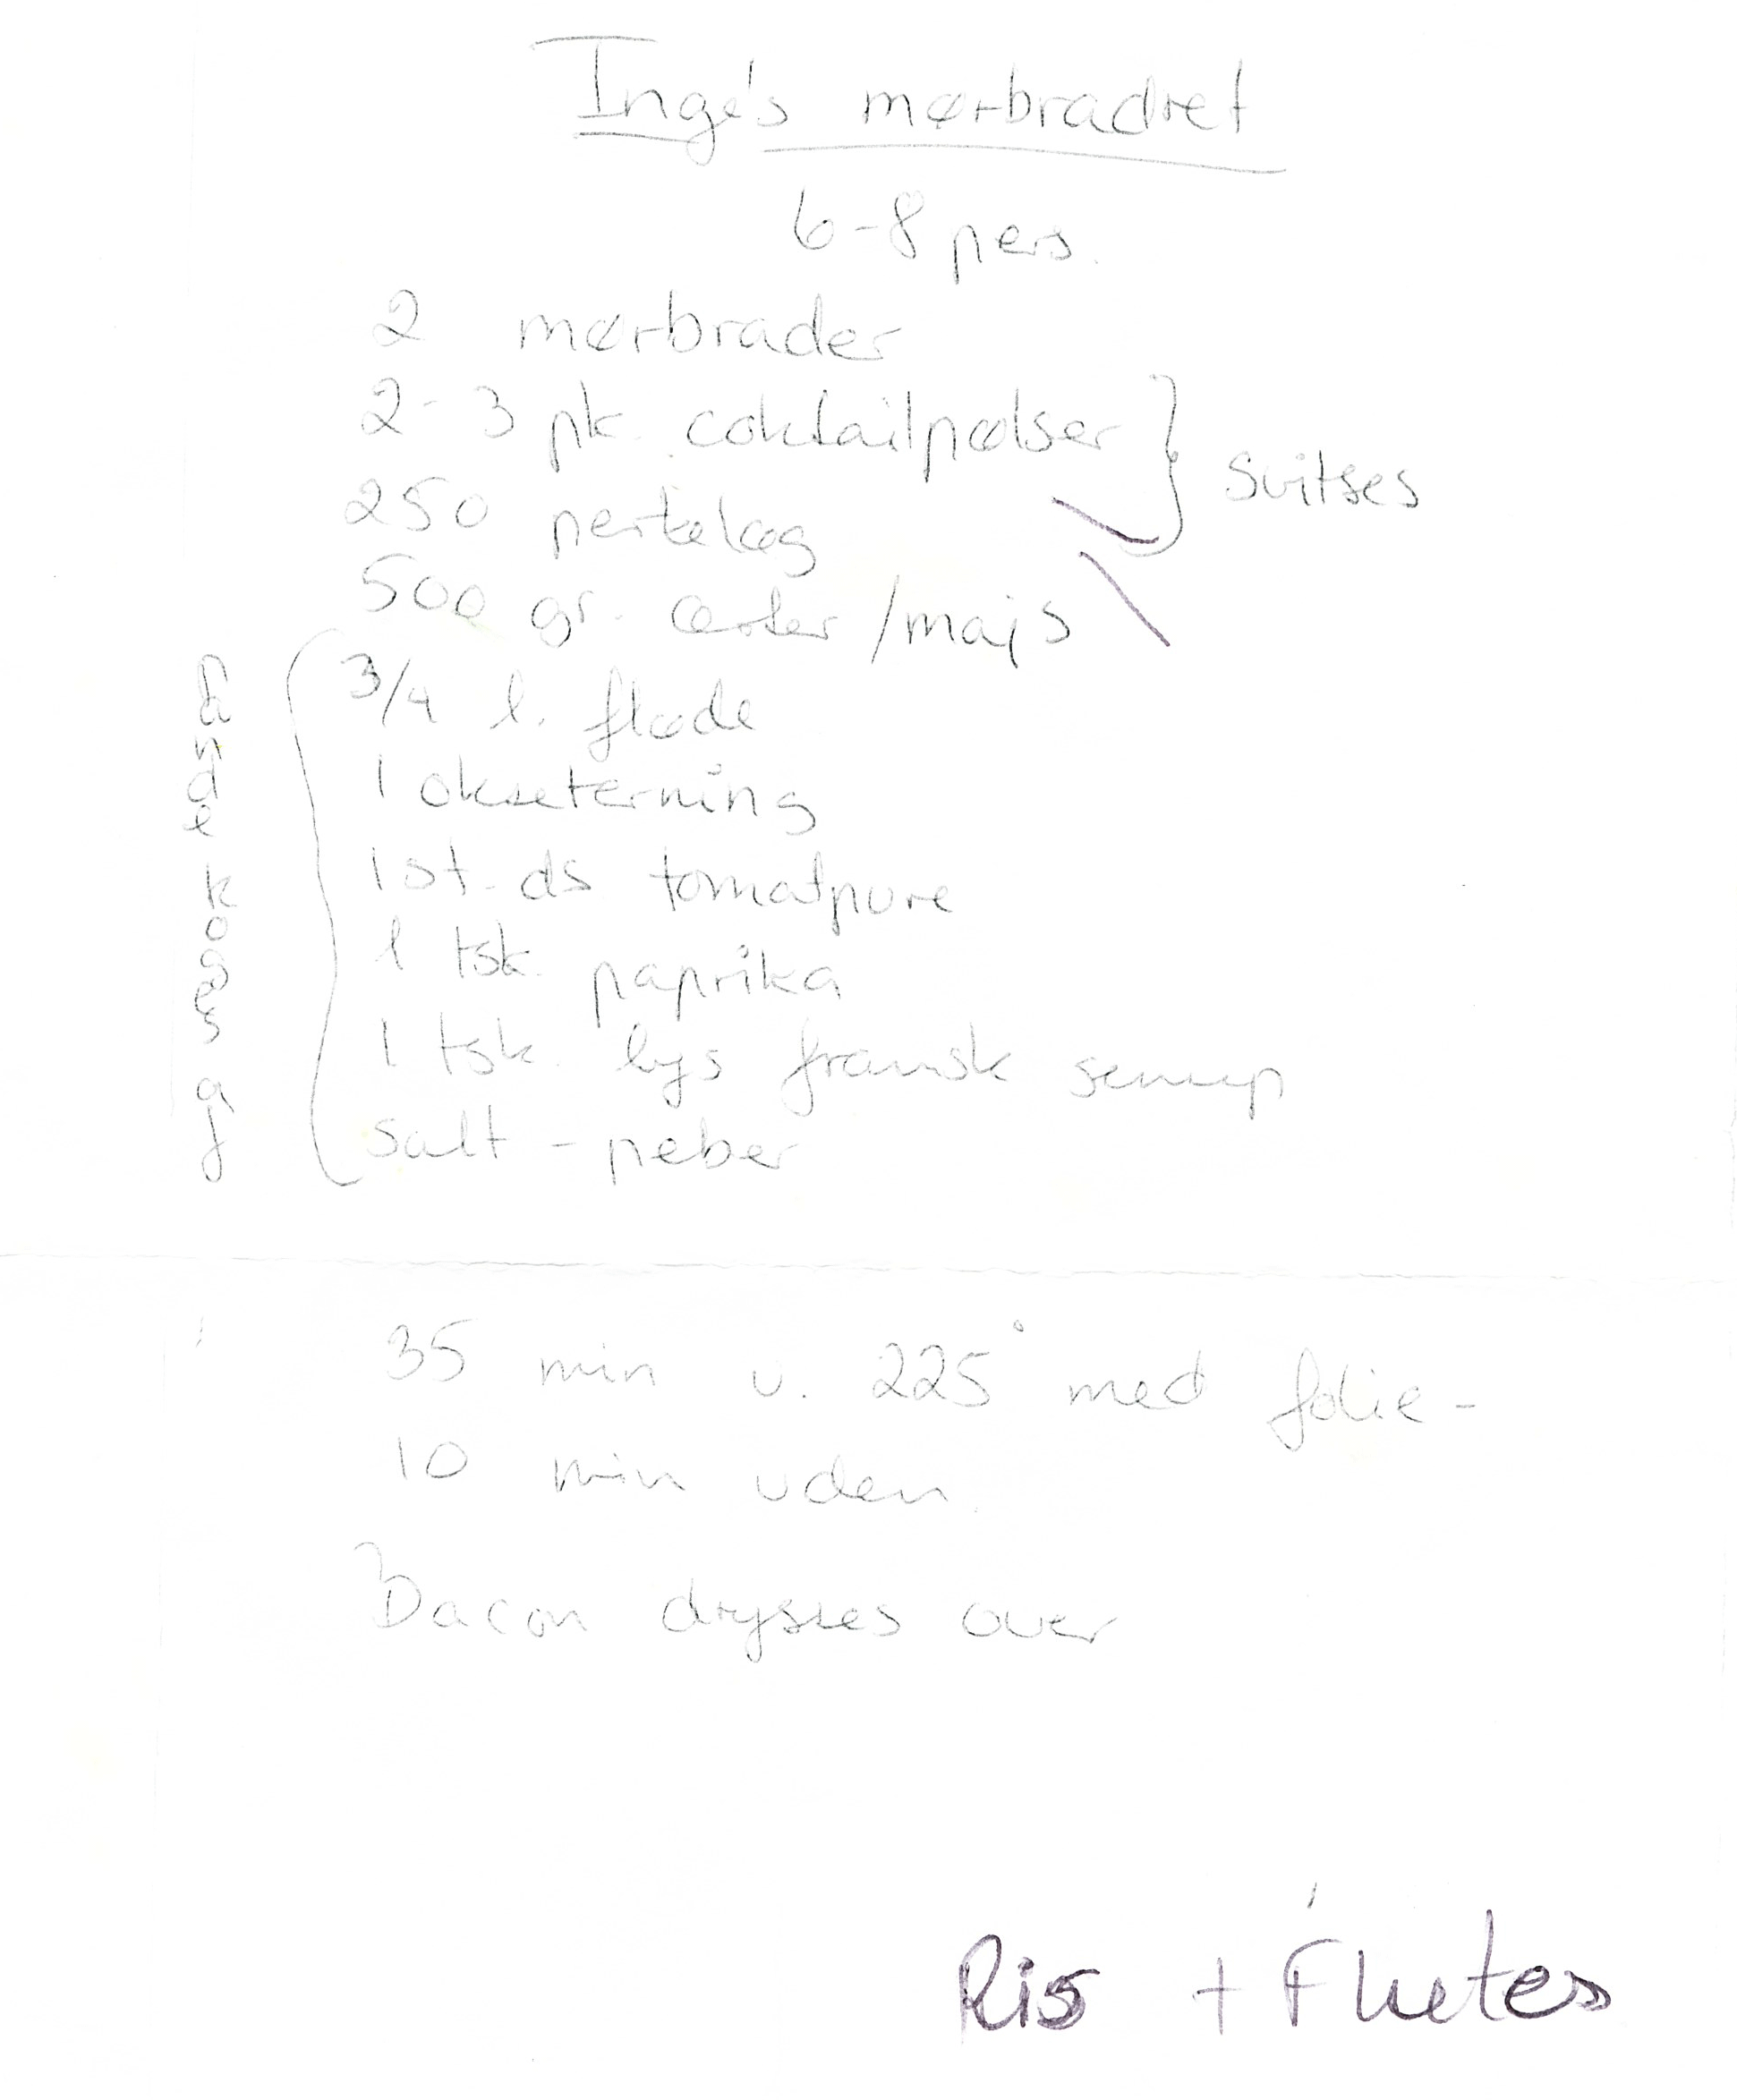 Inge's mørbradret
6-8 pers.
2 mørbrader
2-3 pk. coktailpølser
250 perleløg
svitses
500 gr. ærter /majs
3/4 l. fløde
1 okseterning
1 st. ds tomatpure
1 tsk. paprika
1 tsk. lys fransk sennep
salt - peber
35 min v. 225° med folie -
10 min uden
Bacon drysses over
Ris + Flutes